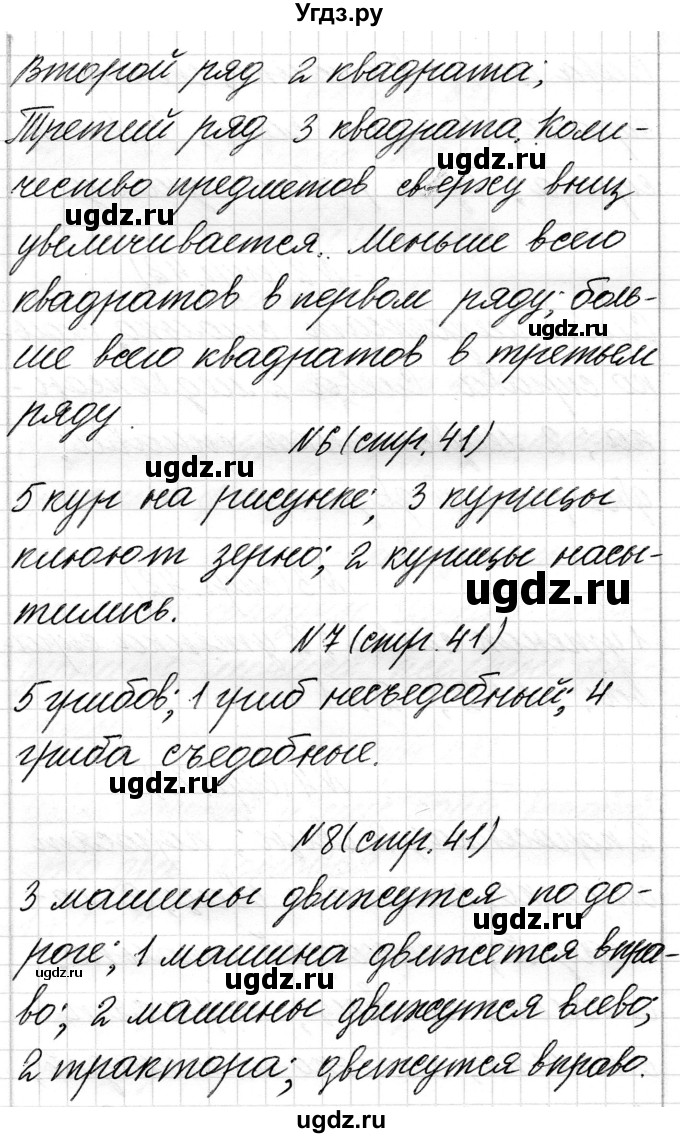 Угдз.ру
Второй ряд 2 квадрата;
Третий ряд 3 квадрата. Коли-
ugdz.ru
чество предметов сверху вниз
ugdz.ru
увеличивается. Меньше всего
квадратов в первом ряду; боль-
ugdz.ru
ше всего квадратов в третьем
ряду.
N6 (стр. 41)
ugdz.ru
5 кур на рисунке; 3 курицы
клюют зерно; 2 курицы насы-
ugdz.ru
тились.
N7 (стр. 41)
ugdz.ru
5 грибов; 1 гриб несъедобный; 4
гриба съедобные.
ugdz.ru
N8 (стр. 41)
ugdz.ru
3 машины движутся по до-
роге; 1 машина движется впра-
ugdz.ru
ugdz.ru
во; 2 машины движутся влево;
2 трактора; движутся вправо.
ugdz.ru
ugdz.ru